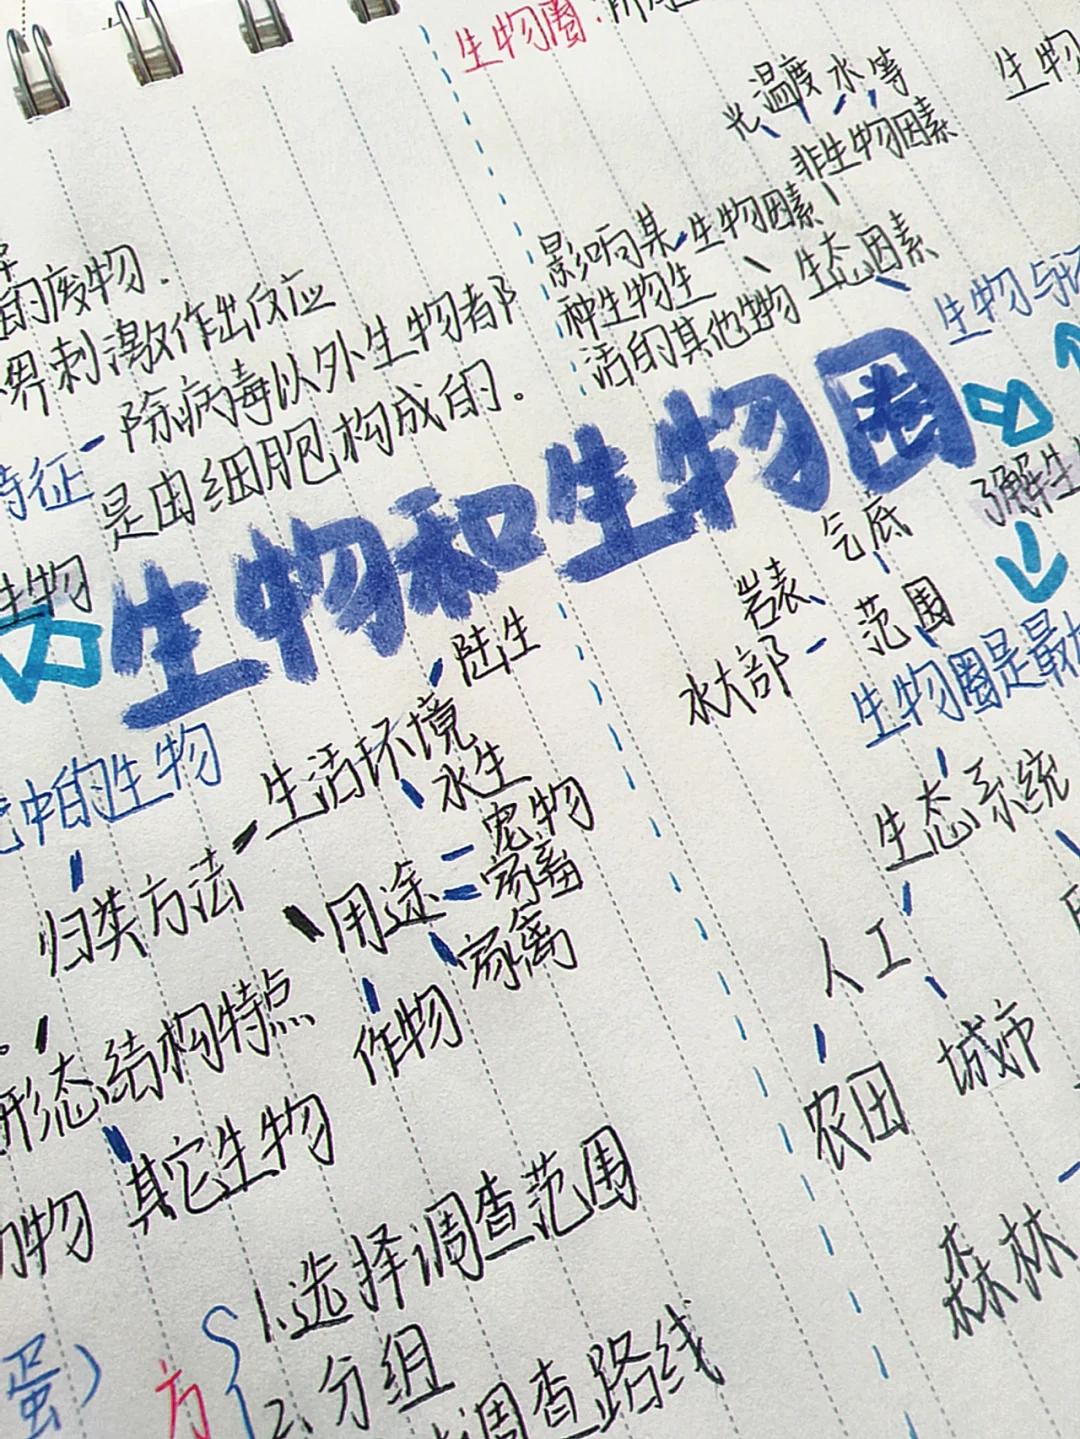 生物圈:
光 温度 水 等
生物
非生物因素
影响某 生物因素
种生物生
活的其他生物
生态因素
生物与
的废物.
界刺激作出反应
除病毒以外生物都
是由细胞构成的.
特征
生物
生物和生物圈
了解生
气底
岩表
范围
水大部
生物圈是最大
生态系统
人工
农田 城市
森林
陆生
生活环境
水生
的生物
归类方法
用途
宠物
家畜
家禽
作物
形态结构特点
物 其它生物
1.选择调查范围
2.分组
调查路线
蛋)
方